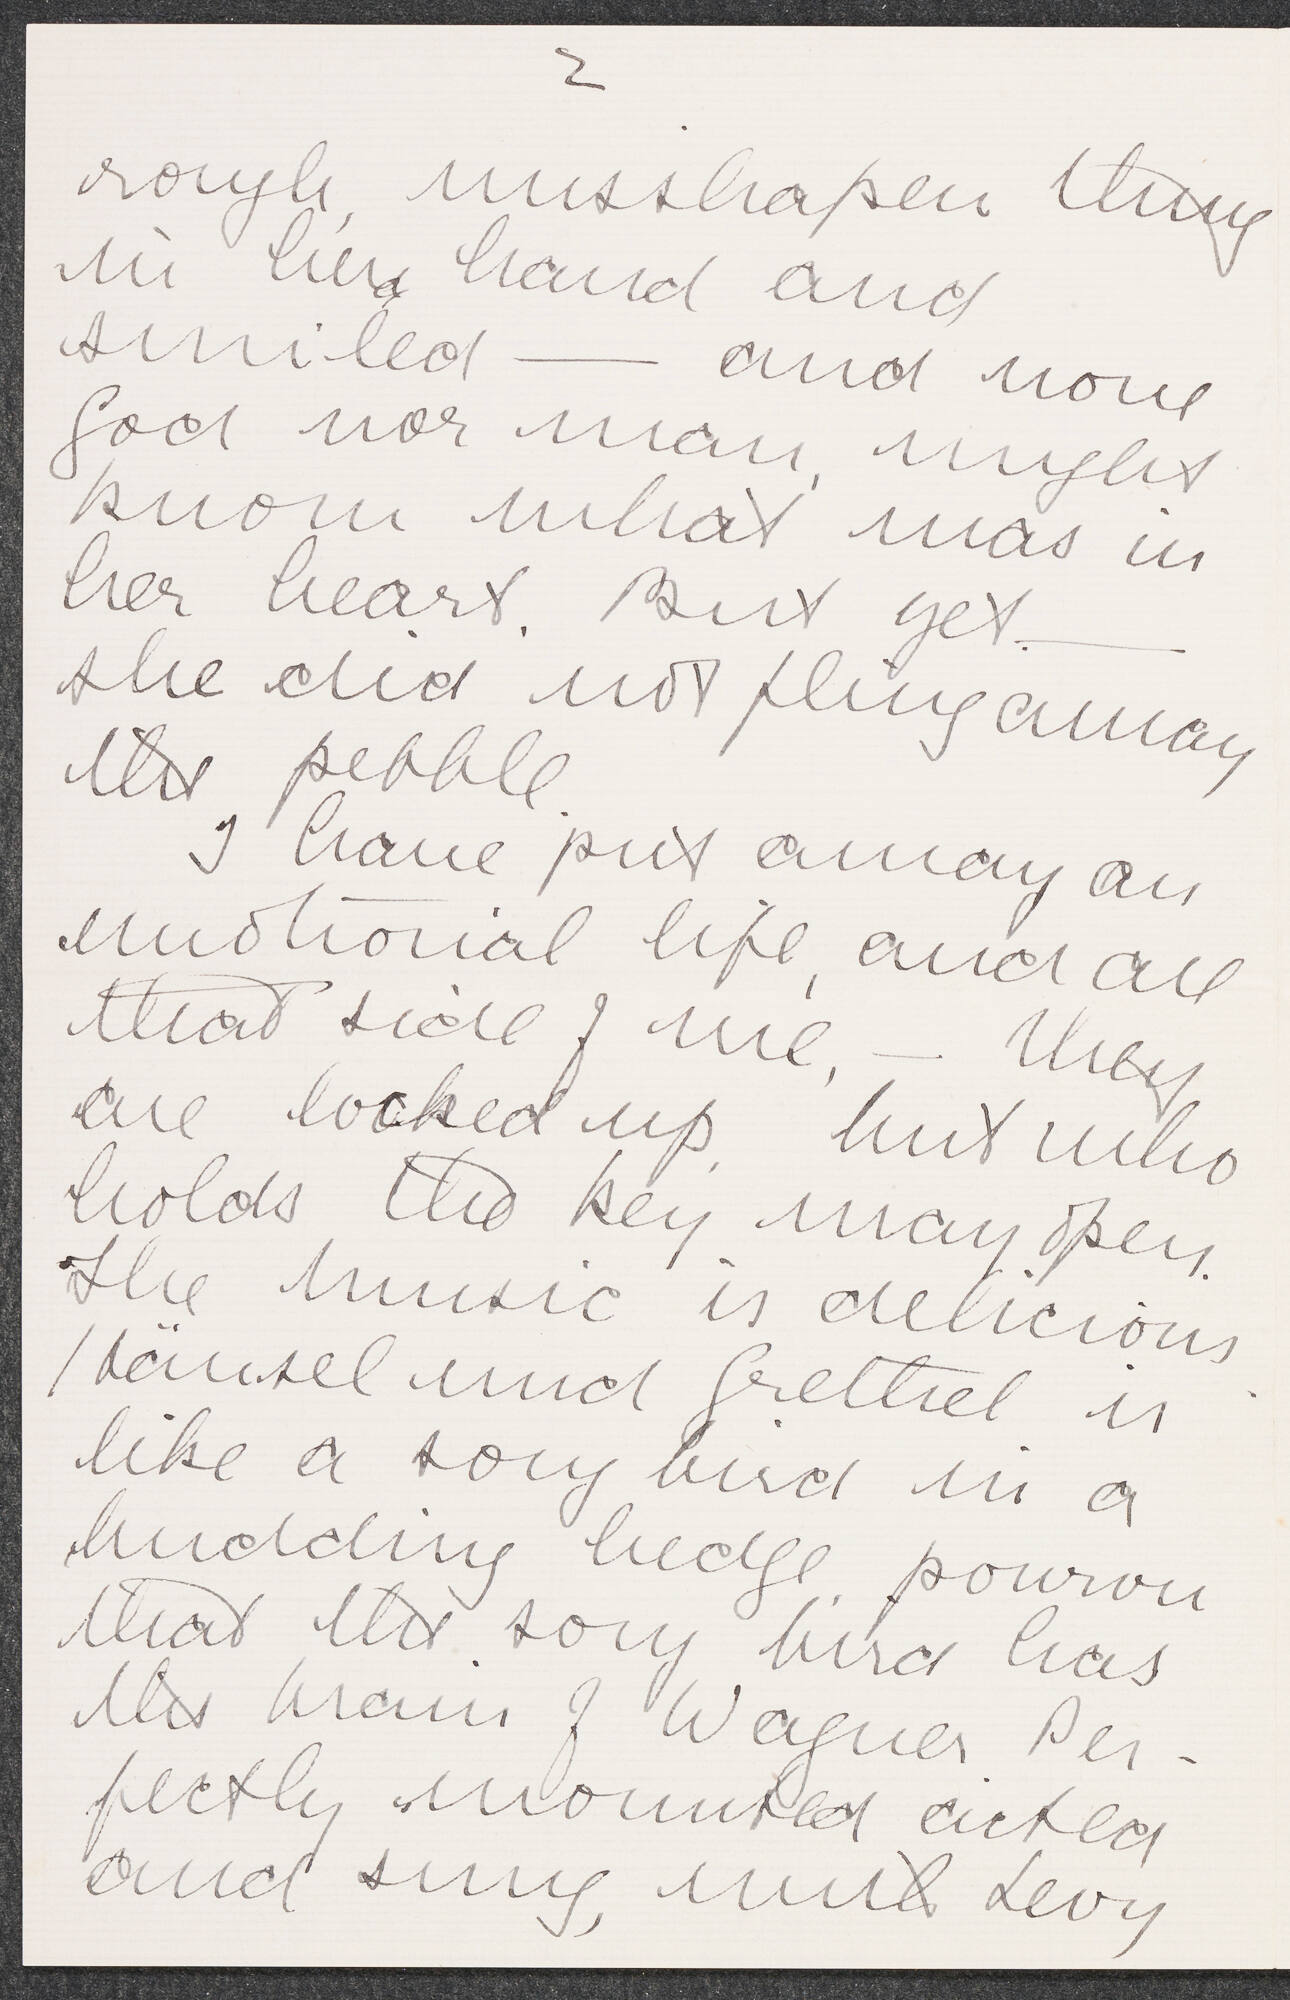 2
rough, misshapen thing
in her hand and
smiled — and none
God nor man, might
know what was in
her heart. But yet —
she did not fling away
the pebble.
I have put away an
emotional life, and all
that side of me, — they
are locked up, but who
holds the key may open.
The music is delicious
Hänsel und Grethel is
like a song bird in a
budding hedge,
that the song bird has
the brain of Wagner. Per-
fectly mounted acted
and sung, with Levy